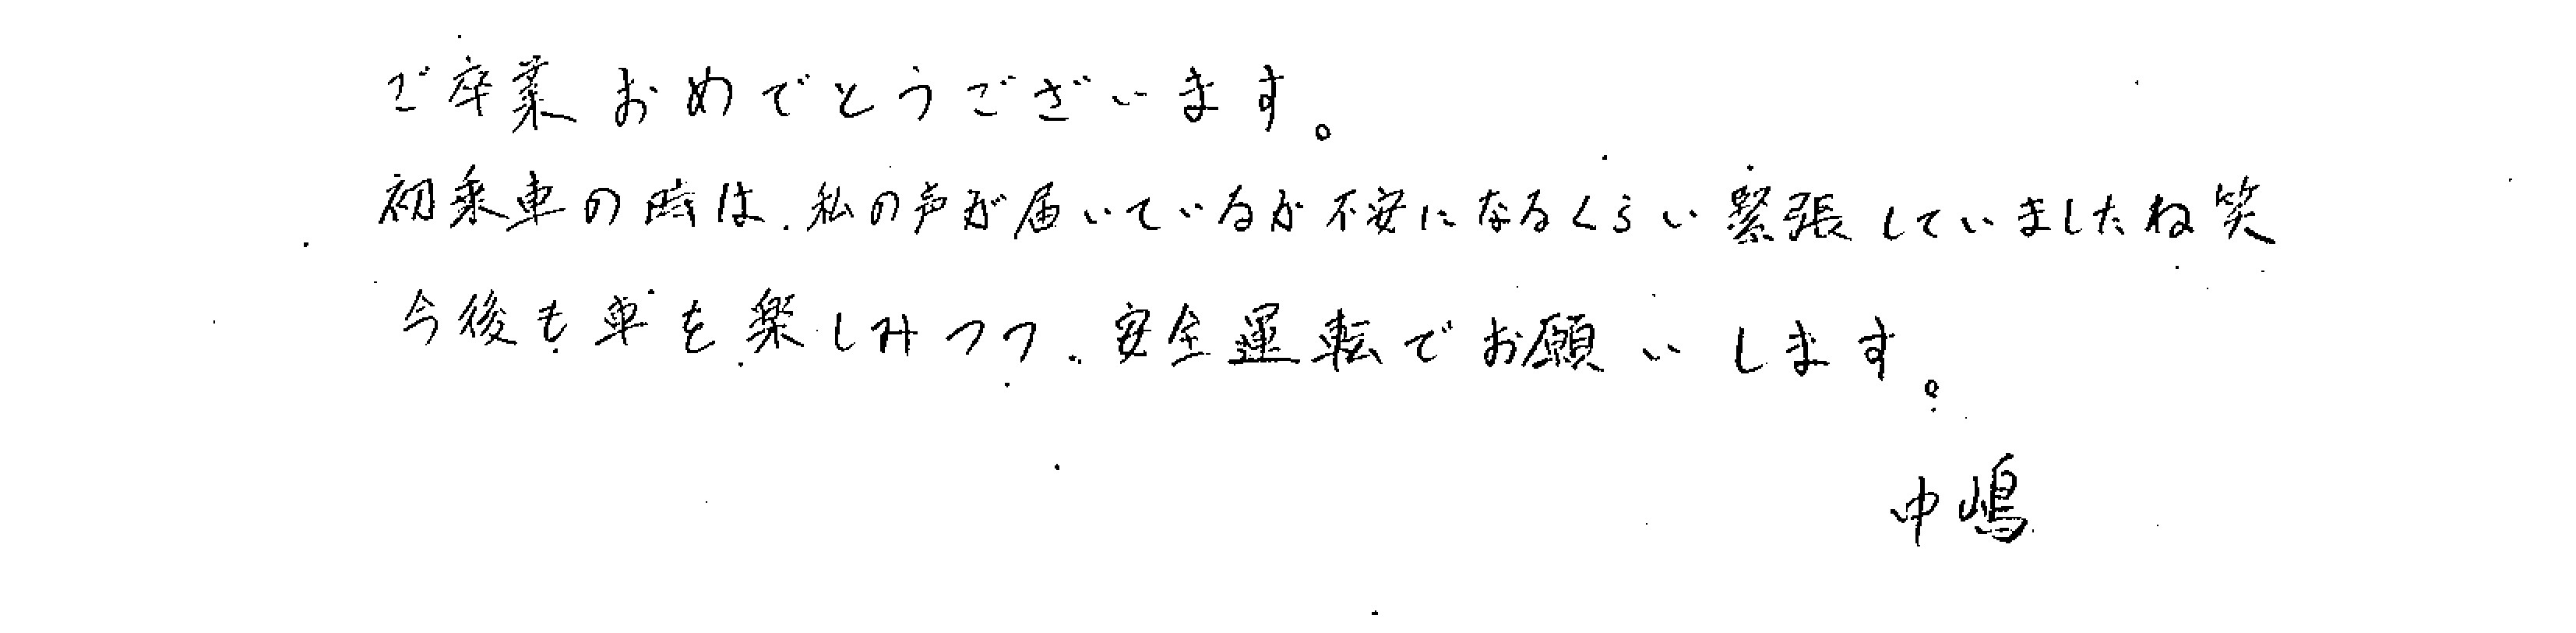 ご卒業おめでとうございます。
初乗車の時は、私の声が届いているか不安になるくらい緊張していましたね笑
今後も車を楽しみつつ、安全運転でお願いします。
中嶋